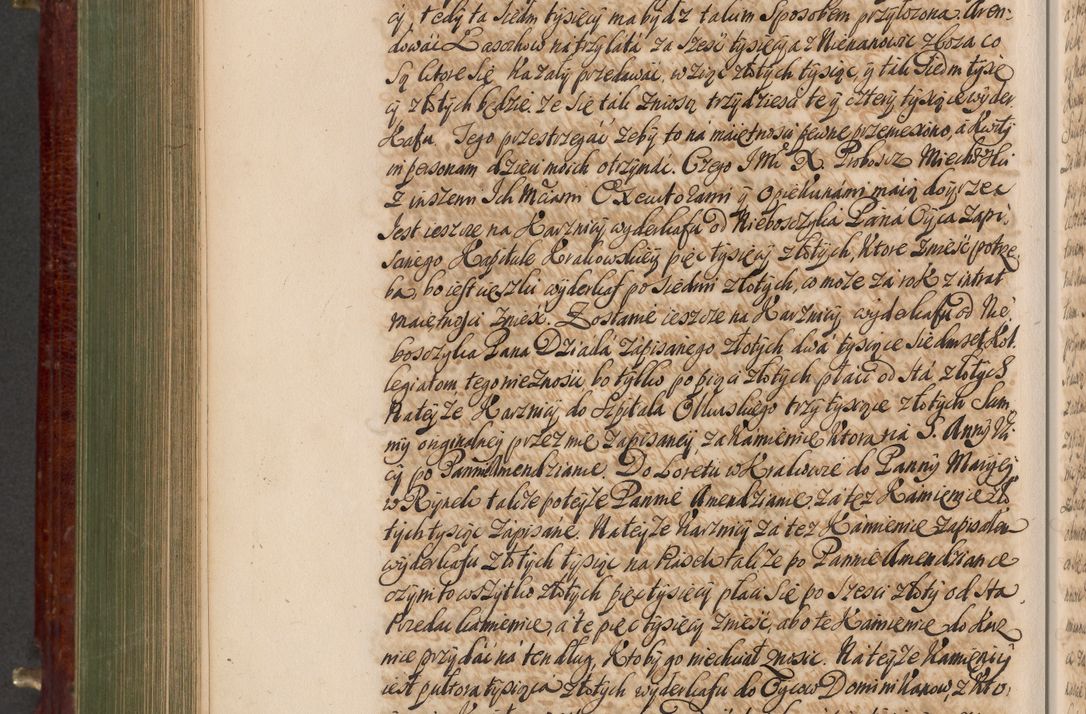 cy, tedy ta Siedm tysięcy ma bydź talum Sposobem przyłozona Aren:
dowác Łasochow ná trzy latá za sześć tysięcy, a z Niekanowic zboza co
Są ktore się kazały przedawác, wziąć złotych tysiąc, y tak siedm tysię
cy złotych będzie. ze się ták zniosą trzydziesci te y cztery tysiące wyder
kafu. Tego przestrzegáć zeby to ná maiętnosci pewne przeniesiono, á kwity
in personam dzieci moich otrzymáć. Czego J Mć X. Proboszcz Miechowski
z inszemi Ich Mciami Executorami y Opiekunámi maią doyrzeć
Jest ieszcze na Karznicy wyderkafu od Nieboszczyka Pána Oyca zapi:
sanego Kapitule Krakowskiey pięć tysięcy złotych, ktore znieść potrze
ba, bo iest cięzki wyderkaf po siedmi złotych, co może za rok z intrat
maiętnosci znieść. Zostanie ieszcze na Karznicy wyderkafu od Nie:
boszczyka Pana Dziadá zápisanego złotych dwá tysiące siedmset Kol
legiatom tego nie znosić, bo tylko po pięci złotych płaci od sta złotych
Na teyże Karznicy do Szpitala Olkuskiego trzy tysiące złotych Sum
my originalney przez mię zapisaney, zá kámienicę ktora na S. Anny Uli
cy po Pannie Amendzianie. Do Loretu w Krakowie do Panny Maryey
w Rynek także po teyże Pannie Amendzianie, zá tęz Kamienicę zło
tych tysiąc zápisane. Na teyże Karznicy za tęz Kámienicę zapisałem
wyderkafu złotych tysiąc na Piasek także po Pannie Amendziance
czym to wszytko złotych pięc tysięcy płaci się po szesci złoty od sta
Przedac kamienicę, a te pięc tysięcy znieść, abo tę Kámienicę do Karz
nice przydáć ná ten dług, ktoby go niechciał znosic. Na teyże Kamienicy
iest pultora tysiąca złotych wyderkafu do Oycow Dominikanow, z kto: